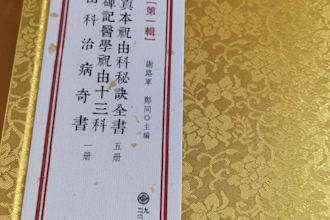 【第一輯】
謝路軍 鄭同◎主編
真本祝由科秘訣全書 五册
碑記醫學祝由十三科
由科治病奇書 一册
九